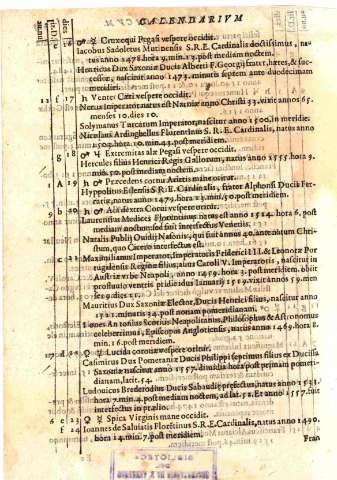 CALENDARIVM
Cruxequi Pegasi vespere occidit.
Iacobus Sadoletus Mutinensis S.R.E. Cardinalis doctissimus, na-
tus anno 1478. hora 9. min. 13. post mediam noctem.
Henricus Dux Saxoniæ Ducis Alberti F. Georgij frater, hæres, & suc-
cessor, nascitur anno 1473. minutis septem ante duodecimam
meridiei.
12 f 17 Venter Cæti vespere occidit.
Nerua Imperator natus est Narniæ anno Christi 33. vixit annos 65.
menses 10. dies 10.
Solymanus Turcarum Imperator, nascitur anno 1500. in meridie.
Nicolaus Ardinghellus Florentinus S. R. E. Cardinalis, natus anno
1503. hora 10. min. 45. post meridiem.
g 18 Extremitas alæ Pegasi vespere occidit.
Hercules filius Henrici Regis Gallorum, natus anno 1555. hora 9.
min. 50. post mediam noctem.
1 A 19 Præcedens cornu Arietis mane oritur.
Hyppolitus Estensis S.R.E. Cardinalis, frater Alphonsi Ducis Fer-
rariæ, natus anno 1479. hora 23. min. 50. post meridiem.
9 b 20 Ala dextra Corui vespere oritur.
Laurentius Medices Florentinus natus est anno 1514. hora 6. post
mediam noctem: sed fuit interfectus Venetiis.
Natalis Publij Ouidij Nasonis, qui fuit annus 40. ante natum Chri-
stum, quo Cicero interfectus est.
c 21 Maximilianus Imperator, Imperatoris Friderici III. & Leonoræ Por
tugalensis Reginæ filius, auus Caroli V. Imperatoris, nascitur in
Austriæ vrbe Neapoli, anno 1459. hora 3. post meridiem. obiit
profluuio ventris pridie Idus Ianuarij 1519. vixit annos 59. men-
ses 9. dies 21.
Mauritius Dux Saxoniæ Elector, Ducis Henrici filius, nascitur anno
1521. minutis 34. post nonam pomeridianam.
Lucas Antonius Scorius Neapolitanus, Philosophus & Astronomus
celeberrimus, Episcopus Anglotiensis, natus anno 1469. hora 8.
min. 16. post meridiem.
17 d 22 Lucida coronæ vespere oritur.
Casimirus Dux Pomeraniæ Ducis Philippi septimus filius ex Ducissa
Saxoniæ nascitur anno 1557. dimidia hora post primam pomeri-
dianam, latit. 54.
Ludouicus Brederodius Ducis Sabaudiæ præfectus, natus anno 1531.
hora 7. min. 4. post mediam noctem, ad lat. 52. Et anno 1557. fuit
interfectus in prælio.
6 e 23 Spica Virginis mane occidit.
f 24 Ioannes de Saluiatis Florẽtinus S.R.E. Cardinalis, natus anno 1490.
hora 14. min. 7. post meridiem.
Fran
BIBLIOTECA